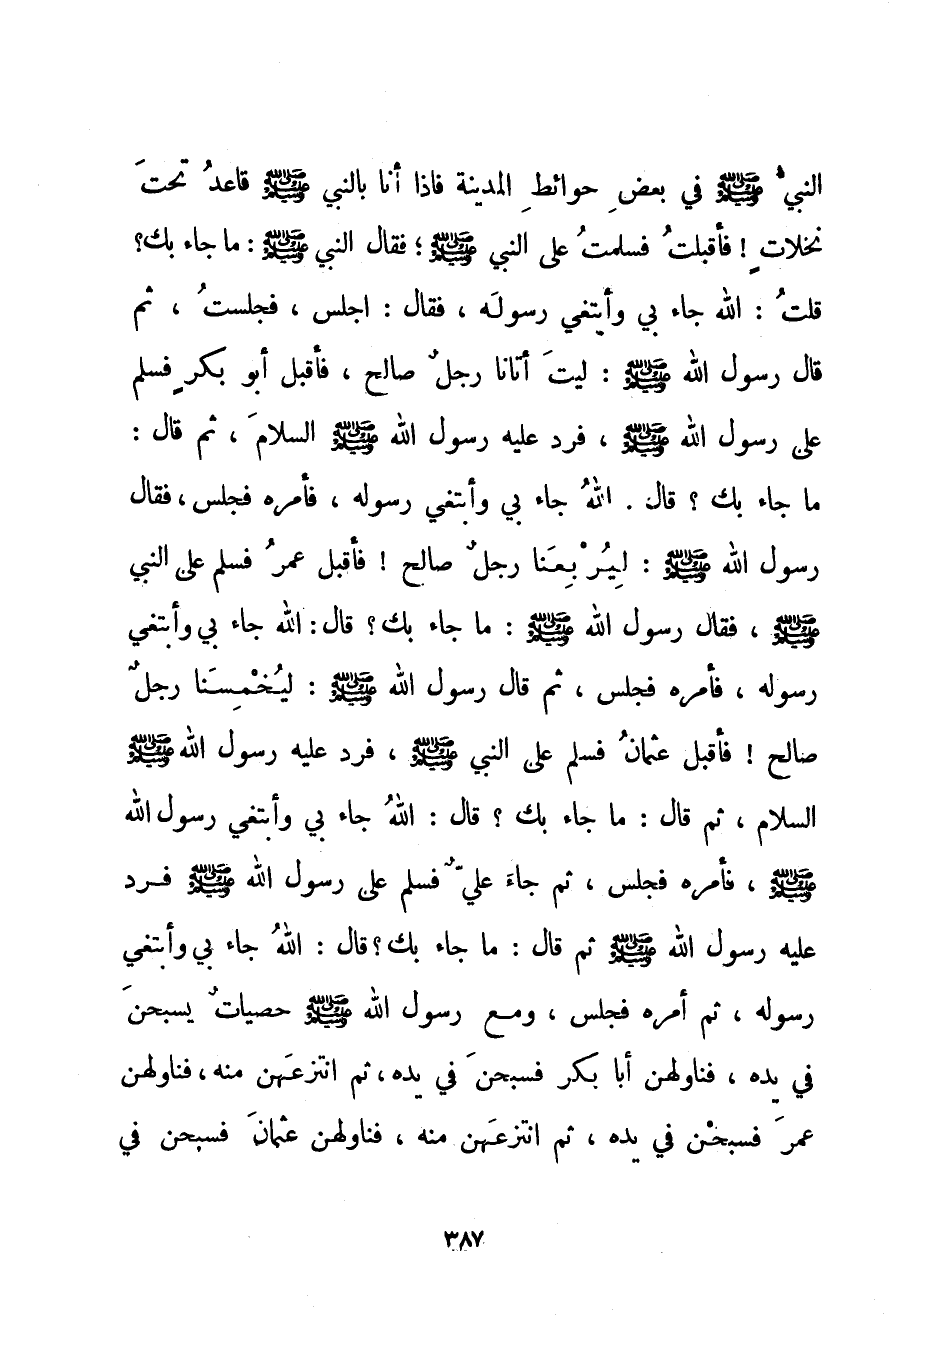 النبيُّ ﷺ في بعضِ حوائطِ المدينة فاذا أنا بالنبي ﷺ قاعدُ تحتَ
نخلاتٍ ! فأقبلتُ فسلمتُ على النبي ﷺ ؛ فقال النبي ﷺ : ما جاء بك؟
قلتُ : الله جاء بي وأبتغي رسولَه ، فقال : اجلس ، فجلستُ ، ثم
قال رسول الله ﷺ : ليتَ أتانا رجلٌ صالح ، فأقبل أبو بكرٍ فسلم
على رسول الله ﷺ ، فرد عليه رسول الله ﷺ السلامَ ، ثم قال :
ما جاء بك ؟ قال . اللهُ جاء بي وأبتغي رسوله ، فأمره فجلس ، فقال
رسول الله ﷺ : لِيُرْبِعَنا رجلٌ صالح ! فأقبل عمرُ فسلم على النبي
ﷺ ، فقال رسول الله ﷺ : ما جاء بك؟ قال: الله جاء بي وأبتغي
رسوله ، فأمره فجلس ، ثم قال رسول الله ﷺ : ليُخْمِسَنا رجلٌ
صالح ! فأقبل عثمانُ فسلم على النبي ﷺ ، فرد عليه رسول الله ﷺ
السلام ، ثم قال : ما جاء بك ؟ قال : اللهُ جاء بي وأبتغي رسول الله
ﷺ ، فأمره فجلس ، ثم جاءَ عليٌّ فسلم على رسول الله ﷺ فرد
عليه رسول الله ﷺ ثم قال : ما جاء بك؟ قال : اللهُ جاء بي وأبتغي
رسوله ، ثم أمره فجلس ، ومع رسول الله ﷺ حصياتٌ يسبحنَ
في يده ، فناولهن أبا بكر فسبحنَ في يده، ثم انتزعَهن منه ، فناولهن
عمرَ فسبحْن في يده ، ثم انتزعَهن منه ، فناولهن عثمانَ فسبحن في
٣٨٧